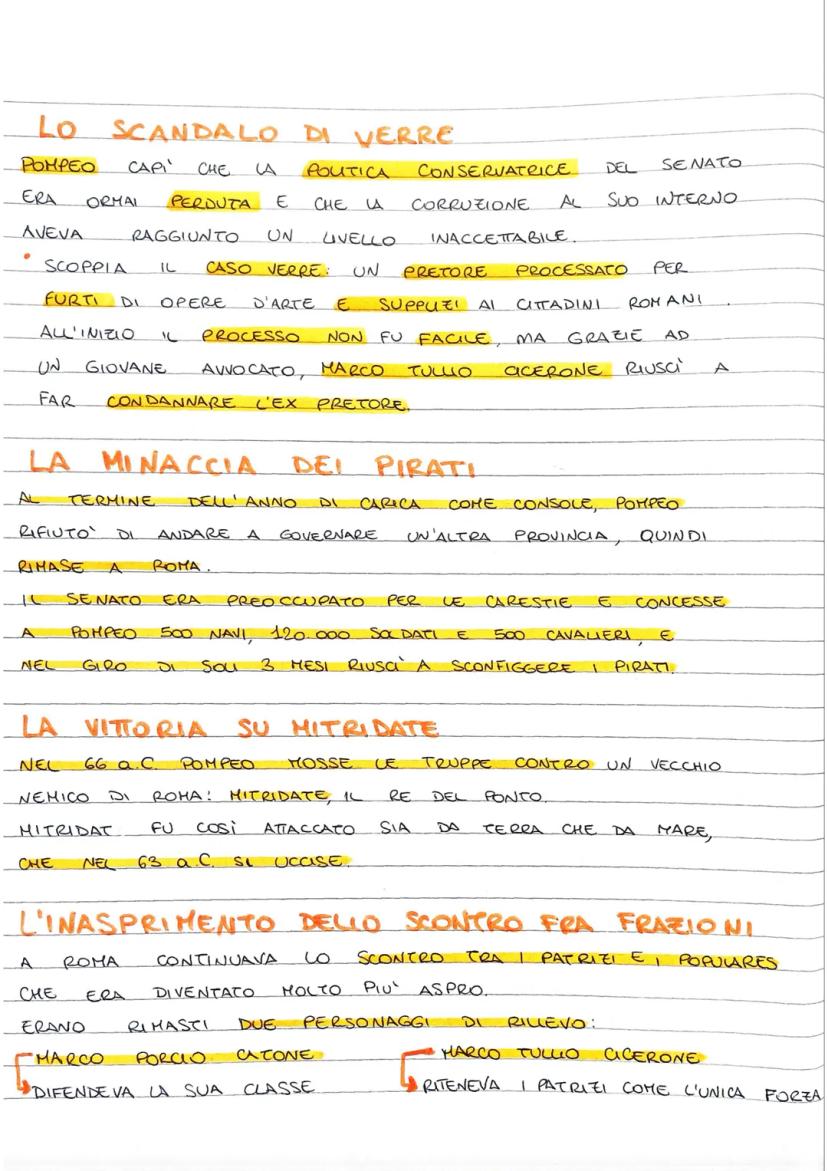 LO SCANDALO DI VERRE
POMPEO CAPI' CHE LA POLITICA CONSERVATRICE DEL SENATO
ERA ORMAI PERDUTA E CHE LA CORRUZIONE AL SUO INTERNO
AVEVA RAGGIUNTO UN LIVELLO INACCETTABILE.
• SCOPPIA IL CASO VERRE: UN PRETORE PROCESSATO PER
FURTI DI OPERE D'ARTE E SUPPLIZI AI CITTADINI ROMANI.
ALL'INIZIO IL PROCESSO NON FU FACILE, MA GRAZIE AD
UN GIOVANE AVVOCATO, MARCO TULLIO CICERONE RIUSCÌ A
FAR CONDANNARE L'EX PRETORE.
LA MINACCIA DEI PIRATI
AL TERMINE DELL'ANNO DI CARICA COME CONSOLE, POMPEO
RIFIUTO' DI ANDARE A GOVERNARE UN'ALTRA PROVINCIA, QUINDI
RIMASE A ROMA.
IL SENATO ERA PREOCCUPATO PER LE CARESTIE E CONCESSE
A POMPEO 500 NAVI, 120.000 SOLDATI E 500 CAVALIERI, E
NEL GIRO DI SOLI 3 MESI RIUSCÌ A SCONFIGGERE I PIRATI.
LA VITTORIA SU MITRIDATE
NEL 66 a.C. POMPEO MOSSE LE TRUPPE CONTRO UN VECCHIO
NEMICO DI ROMA: MITRIDATE, IL RE DEL PONTO.
MITRIDAT FU COSÌ ATTACCATO SIA DA TERRA CHE DA MARE,
CHE NEL 63 a.C. SI UCCISE.
L'INASPRIMENTO DELLO SCONTRO FRA FRAZIONI
A ROMA CONTINUAVA LO SCONTRO TRA I PATRIZI E I POPULARES
CHE ERA DIVENTATO MOLTO PIU' ASPRO.
ERANO RIMASTI DUE PERSONAGGI DI RILIEVO:
MARCO PORCIO CATONE MARCO TULLIO CICERONE
DIFENDEVA LA SUA CLASSE RITENEVA I PATRIZI COME L'UNICA FORZA